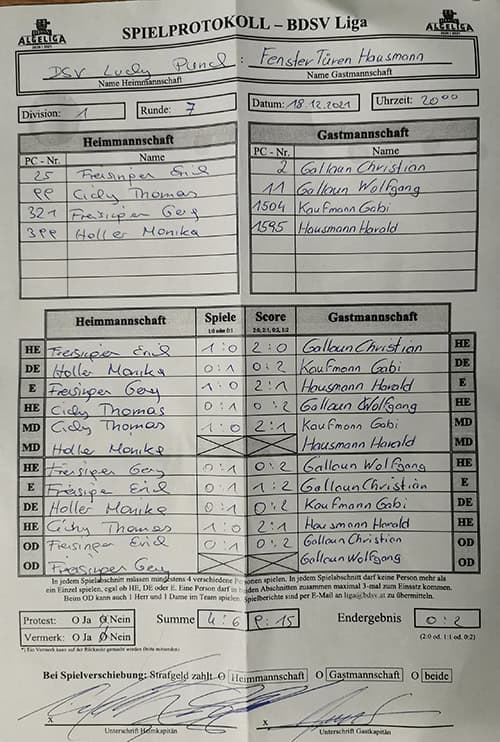 ALGELIGA SPIELPROTOKOLL – BDSV Liga ALGELIGA
DSV Lucky Punch : Fenster Türen Hausmann
Name Heimmannschaft Name Gastmannschaft
Division: 1 Runde: 7 Datum: 18.12.2021 Uhrzeit: 20°°
Heimmannschaft Gastmannschaft
PC - Nr. Name PC - Nr. Name
25 Freisinger Erich 2 Gallaun Christian
99 Cichy Thomas 11 Gallaun Wolfgang
321 Freisinger Gery 1504 Kaufmann Gabi
399 Holler Monika 1595 Hausmann Harald
Heimmannschaft Spiele Score Gastmannschaft
1:0 oder 0:1 2:0, 2:1, 0:2, 1:2
HE Freisinger Erich 1:0 2:0 Gallaun Christian HE
DE Holler Monika 0:1 0:2 Kaufmann Gabi DE
E Freisinger Gery 1:0 2:1 Hausmann Harald E
HE Cichy Thomas 0:1 0:2 Gallaun Wolfgang HE
MD Cichy Thomas 1:0 2:1 Kaufmann Gabi MD
MD Holler Monika Hausmann Harald MD
HE Freisinger Gery 0:1 0:2 Gallaun Wolfgang HE
E Freisinger Erich 0:1 1:2 Gallaun Christian E
DE Holler Monika 0:1 0:2 Kaufmann Gabi DE
HE Cichy Thomas 1:0 2:1 Hausmann Harald HE
OD Freisinger Erich 0:1 0:2 Gallaun Christian OD
OD Freisinger Gery Gallaun Wolfgang OD
In jedem Spielabschnitt müssen mindestens 4 verschiedene Personen spielen. In jedem Spielabschnitt darf keine Person mehr als
ein Einzel spielen, egal ob HE, DE oder E. Eine Person darf in beiden Abschnitten zusammen maximal 3-mal zum Einsatz kommen.
Beim OD kann auch 1 Herr und 1 Dame im Team spielen. Spielberichte sind per E-Mail an liga@bdsv.at zu übermitteln.
Protest: O Ja O Nein Summe 4:6 9:15 Endergebnis 0:2
Vermerk: O Ja O Nein (2:0 od. 1:1 od. 0:2)
*) Ein Vermerk kann auf der Rückseite gemacht werden (bitte mitsenden)
Bei Spielverschiebung: Strafgeld zahlt O Heimmannschaft O Gastmannschaft O beide
x x
Unterschrift Heimkapitän Unterschrift Gastkapitän